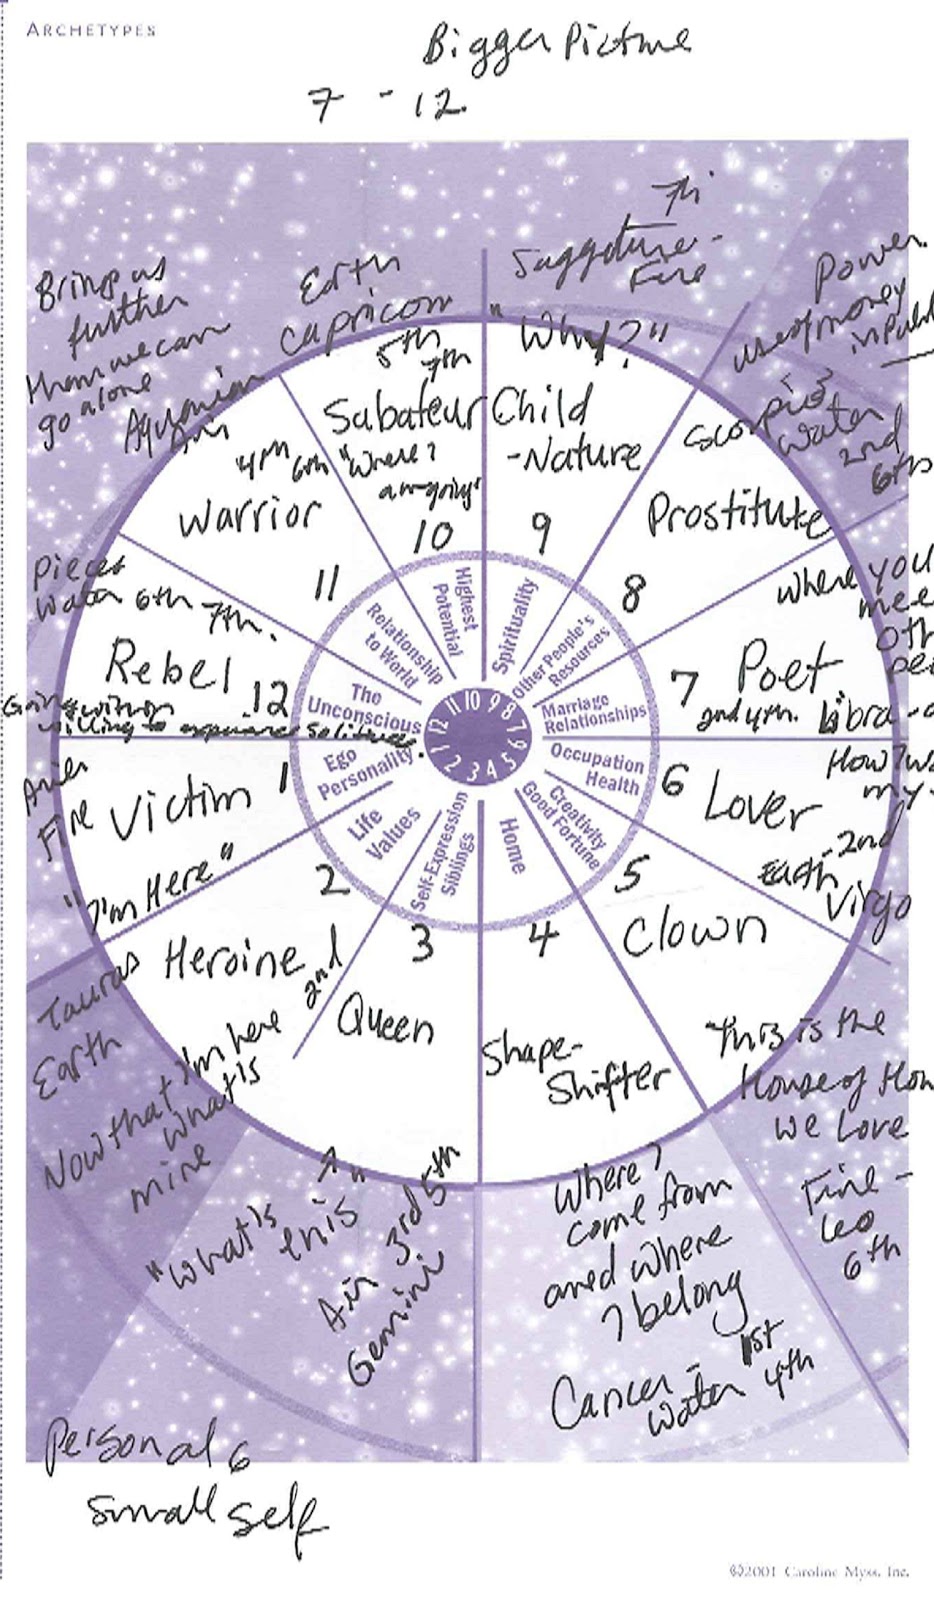 ARCHETYPES
Bigger Picture
7 - 12
7th
Saggature -
Fire
"Why?"
Child
-Nature
9
Spirituality
Power
use of money
Scorpio
water
2nd
6th
Prostitute
8
Other People's
Resources
Where you
mee
oth
pe
Poet
7
2nd 4th. Libra - a
Marriage
Relationships
How I w
my -
6
Lover
2nd
Earth
Virgo
Occupation
Health
5
Clown
Creativity
Good Fortune
This is the
House of How
we Love
Fire -
Leo
6th
4
Home
Shape-
Shifter
Where I
come from
and where
I belong
Cancer - 1st
water 4th
3
Self-Expression
Siblings
Queen
"What's
this"
Air 3rd 5th
Gemini
2
Life
Values
Heroine
2nd
Tauras
Earth
Now that I'm here
what's
mine
1
Ego
Personality
Victim
Aries
Fire
"I'm Here"
12
The
Unconscious
Rebel
Pieces
Water 6th 7th.
Going within
willing to experience Solitude.
11
Relationship
to World
Warrior
4th 6th
Brings us
further
than we can
go alone
Aquarian
Air
10
Highest
Potential
Sabateur
"Where?
am going"
5th
7th
Earth
Capricorn
12 11 10 9 8 7
1 2 3 4 5 6
Personal 6
Small self
©2001 Caroline Myss, Inc.